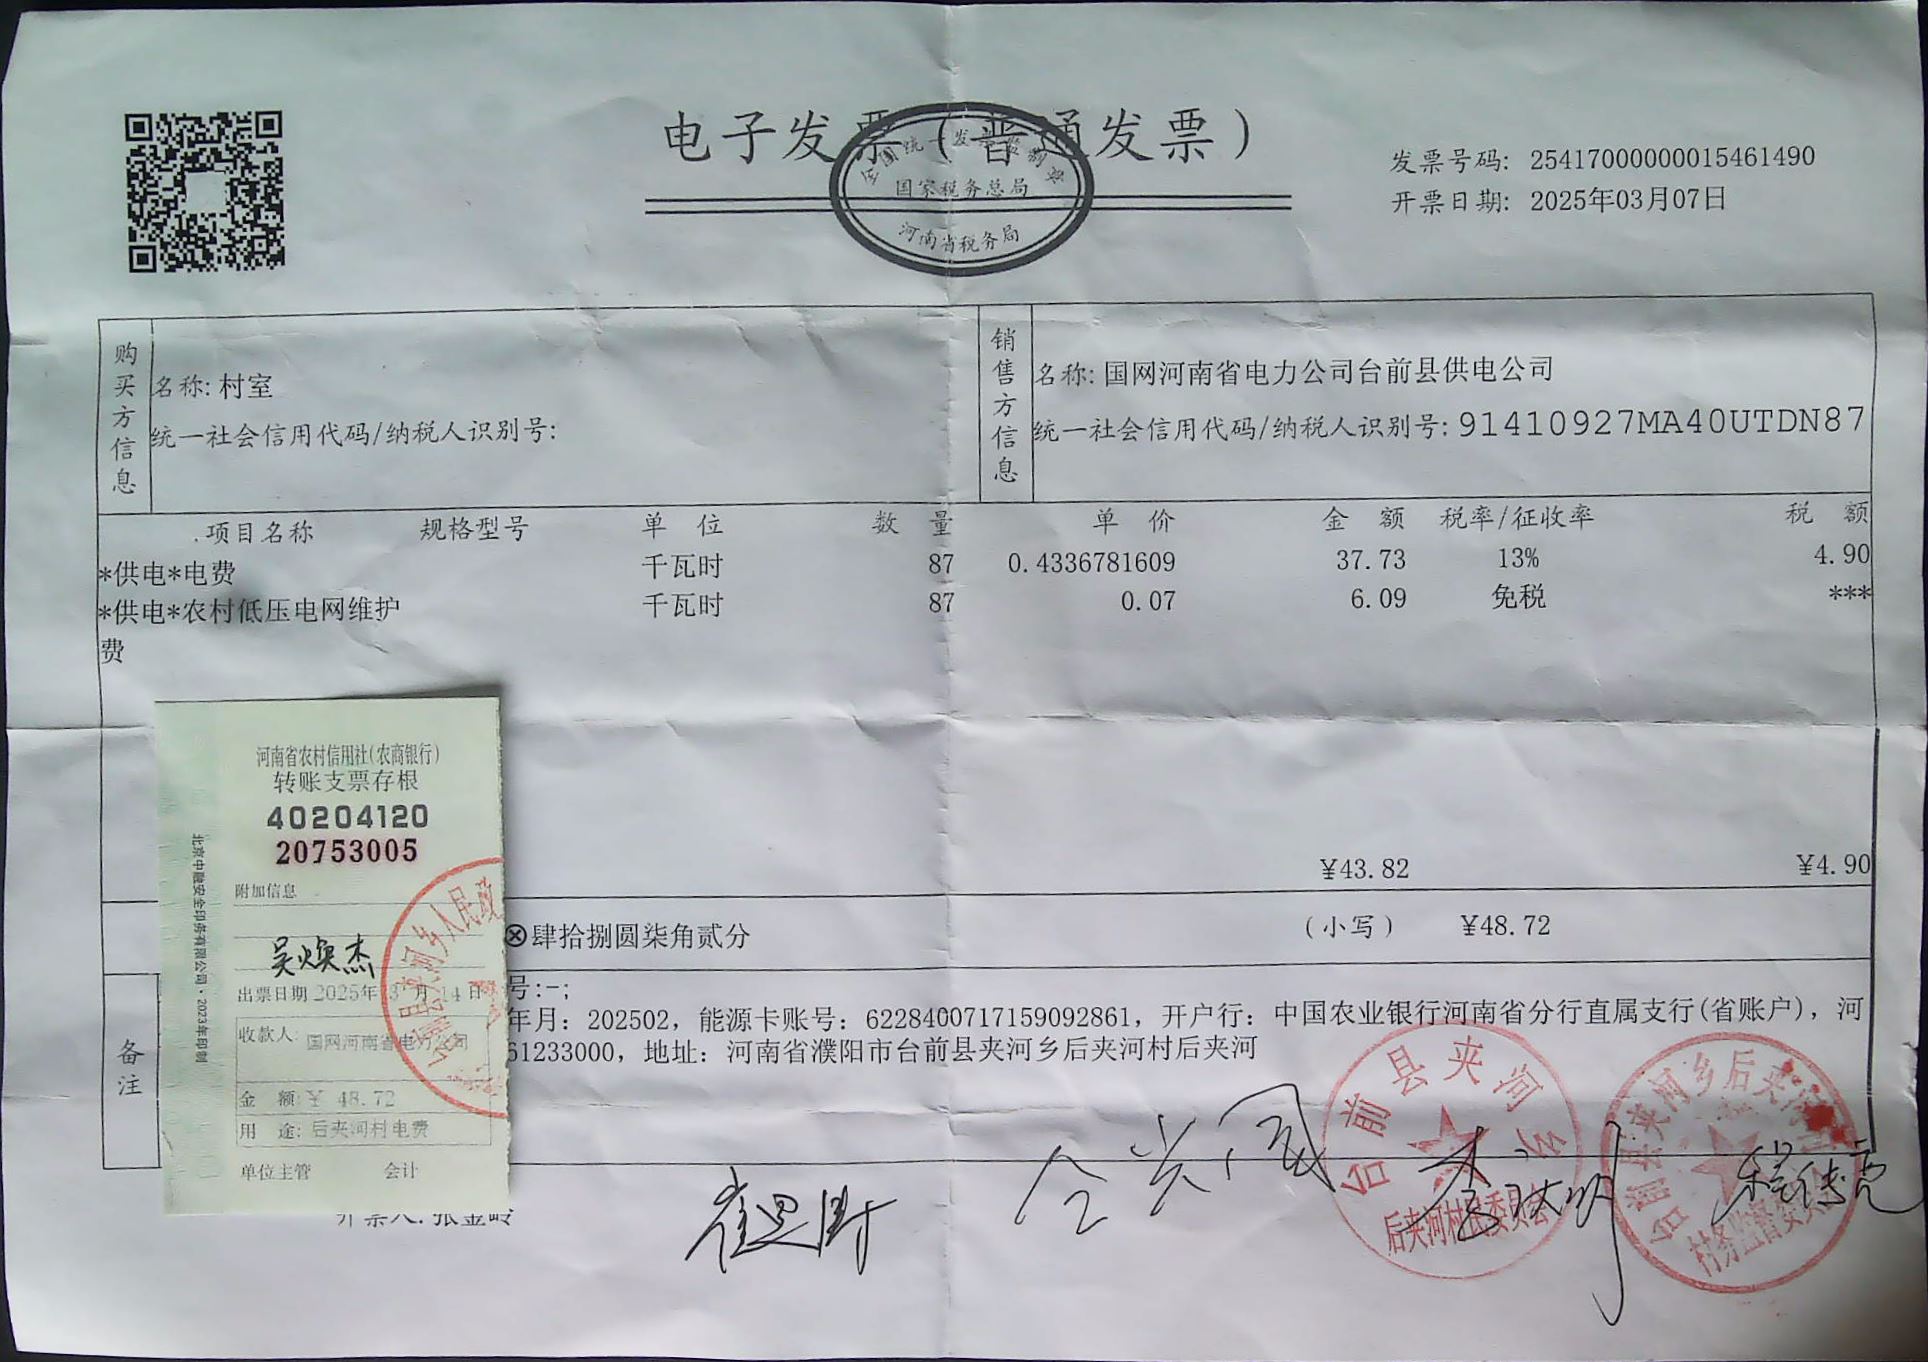 电子发票（普通发票）
全国统一发票监制章
国家税务总局
河南省税务局
发票号码: 25417000000015461490
开票日期: 2025年03月07日
购买方信息
名称: 村室
统一社会信用代码/纳税人识别号:
销售方信息
名称: 国网河南省电力公司台前县供电公司
统一社会信用代码/纳税人识别号: 91410927MA40UTDN87
项目名称 规格型号 单 位 数 量 单 价 金 额 税率/征收率 税 额
*供电*电费 千瓦时 87 0.4336781609 37.73 13% 4.90
*供电*农村低压电网维护 千瓦时 87 0.07 6.09 免税 ***
费
¥43.82 ¥4.90
⊗肆拾捌圆柒角贰分 (小写) ¥48.72
备注
号:-;
年月: 202502, 能源卡账号: 6228400717159092861, 开户行: 中国农业银行河南省分行直属支行(省账户), 河
61233000, 地址: 河南省濮阳市台前县夹河乡后夹河村后夹河
开票人: 张金岭
河南省农村信用社(农商银行)
转账支票存根
40204120
20753005
附加信息
吴焕杰
出票日期 2025年 3 月 14 日
收款人: 国网河南省电力公司
金 额: ¥ 48.72
用 途: 后夹河村电费
单位主管 会计
北京中融安全印务有限公司·2023年印制
台前县夹河乡
后夹河村民委员会
台前县夹河乡后夹河
村务监督委员会